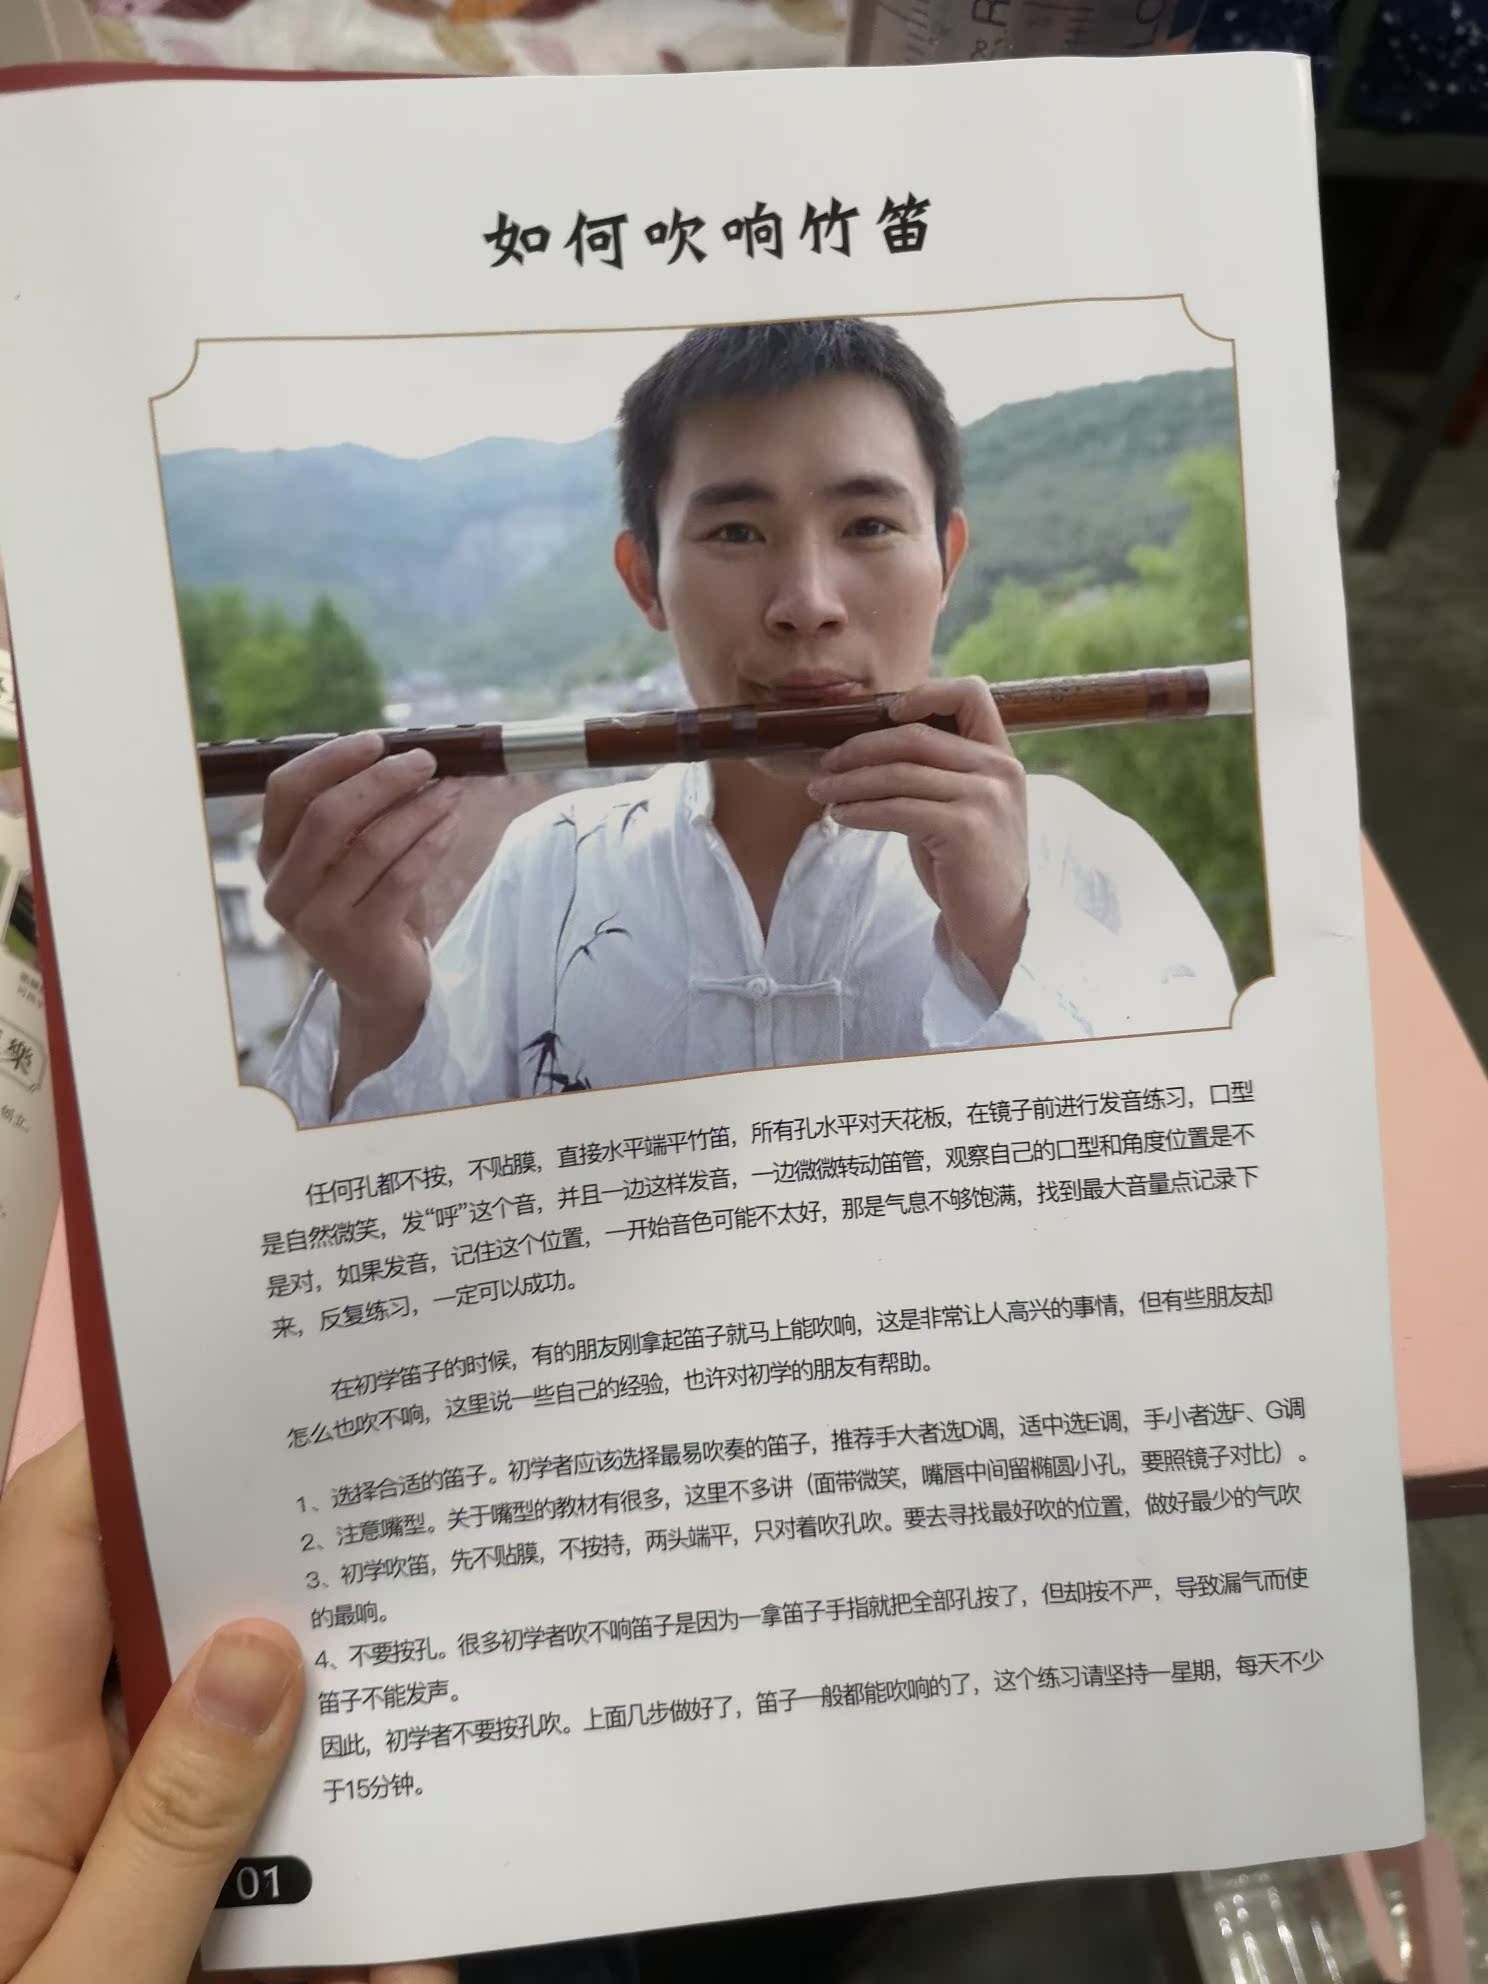 如何吹响竹笛
任何孔都不按，不贴膜，直接水平端平竹笛，所有孔水平对天花板，在镜子前进行发音练习，口型
是自然微笑，发“呼”这个音，并且一边这样发音，一边微微转动笛管，观察自己的口型和角度位置是不
是对，如果发音，记住这个位置，一开始音色可能不太好，那是气息不够饱满，找到最大音量点记录下
来，反复练习，一定可以成功。
在初学笛子的时候，有的朋友刚拿起笛子就马上能吹响，这是非常让人高兴的事情，但有些朋友却
怎么也吹不响，这里说一些自己的经验，也许对初学的朋友有帮助。
1、选择合适的笛子。初学者应该选择最易吹奏的笛子，推荐手大者选D调，适中选E调，手小者选F、G调
2、注意嘴型。关于嘴型的教材有很多，这里不多讲（面带微笑，嘴唇中间留椭圆小孔，要照镜子对比）。
3、初学吹笛，先不贴膜，不按持，两头端平，只对着吹孔吹。要去寻找最好吹的位置，做好最少的气吹
的最响。
4、不要按孔。很多初学者吹不响笛子是因为一拿笛子手指就把全部孔按了，但却按不严，导致漏气而使
笛子不能发声。
因此，初学者不要按孔吹。上面几步做好了，笛子一般都能吹响的了，这个练习请坚持一星期，每天不少
于15分钟。
01
樂
创立。